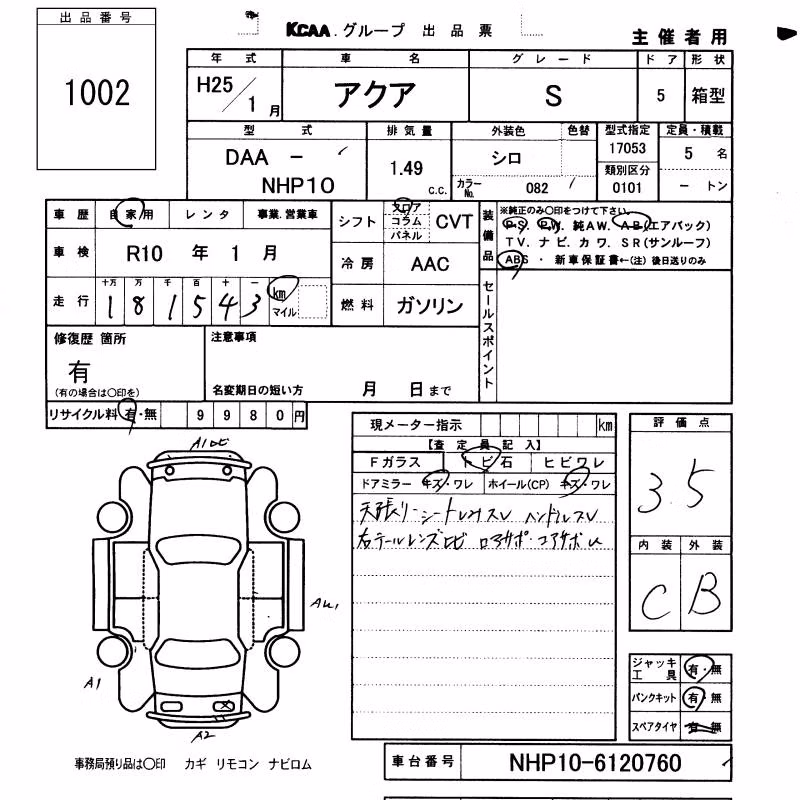 出品番号
1002
KCAA.グループ 出品票
主催者用
年式 車名 グレード ドア 形状
H25/1月 アクア S 5 箱型
型式 排気量 外装色 色替 型式指定 定員・積載
DAA - NHP10
1.49 c.c.
シロ
カラーNo. 082
17053
類別区分
0101
5 名
- トン
車歴 自家用 レンタ 事業.営業車
シフト フロア コラム パネル CVT
装備品
※純正のみ○印をつけて下さい。
P.S. P.W. 純AW. AB(エアバック)
TV. ナビ. カワ. SR(サンルーフ)
ABS ・ 新車保証書←(注) 後日送りのみ
車検 R10 年 1 月
冷房 AAC
走行 十万 万 千 百 十 一
181543 km マイル
燃料 ガソリン
セールスポイント
修復歴 箇所
有
(有の場合は○印を)
注意事項
名変期日の短い方 月 日まで
リサイクル料 有・無 9980円
現メーター指示 km
【査定員記入】
Fガラス トビ石 ヒビワレ
ドアミラー キズ・ワレ ホイール(CP) キズ・ワレ
天張り・シート
右テールレンズヒビ
評価点
3.5
内装 外装
C B
A1ヒビ
A1
A2
ジャッキ工具 有・無
パンクキット 有・無
スペアタイヤ 有・無
事務局預り品は○印 カギ リモコン ナビロム
車台番号 NHP10-6120760